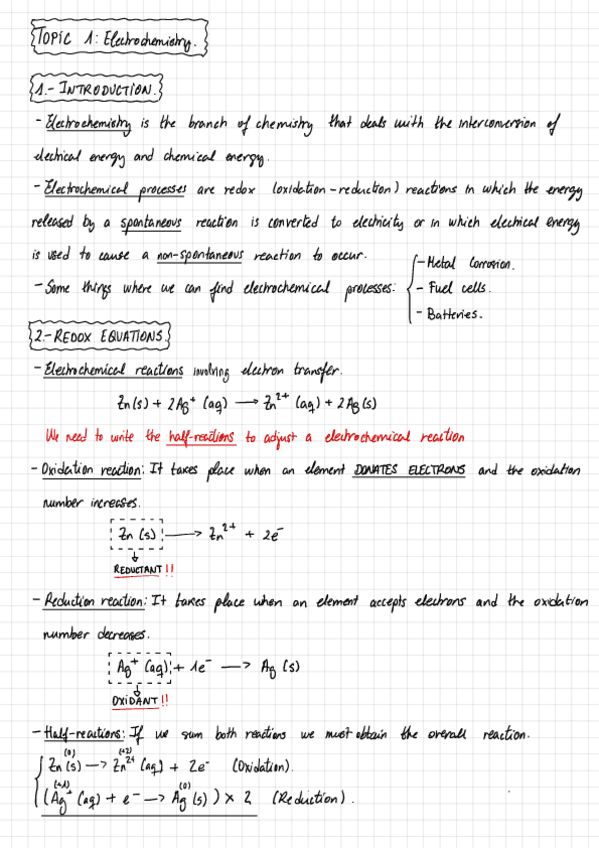 TOPIC 1: Electrochemistry.
1.- INTRODUCTION.
- Electrochemistry is the branch of chemistry that deals with the interconversion of
electrical energy and chemical energy.
- Electrochemical processes are redox (oxidation-reduction) reactions in which the energy
released by a spontaneous reaction is converted to electricity or in which electrical energy
is used to cause a non-spontaneous reaction to occur.
- Some things where we can find electrochemical processes:
- Metal Corrosion.
- Fuel cells.
- Batteries.
2.- REDOX EQUATIONS.
- Electrochemical reactions involving electron transfer.
Zn(s) + 2Ag⁺ (aq) → Zn²⁺ (aq) + 2Ag(s)
We need to write the half-reactions to adjust a electrochemical reaction
- Oxidation reaction: It takes place when an element DONATES ELECTRONS and the oxidation
number increases.
Zn (s) → Zn²⁺ + 2e⁻
REDUCTANT!!
- Reduction reaction: It takes place when an element accepts electrons and the oxidation
number decreases.
Ag⁺ (aq) + 1e⁻ → Ag (s)
OXIDANT!!
- Half-reactions: If we sum both reactions we must obtain the overall reaction.
(0) (+2)
Zn(s) → Zn²⁺ (aq) + 2e⁻ (Oxidation).
(+1) (0)
(Ag⁺ (aq) + e⁻ → Ag (s)) × 2 (Reduction).